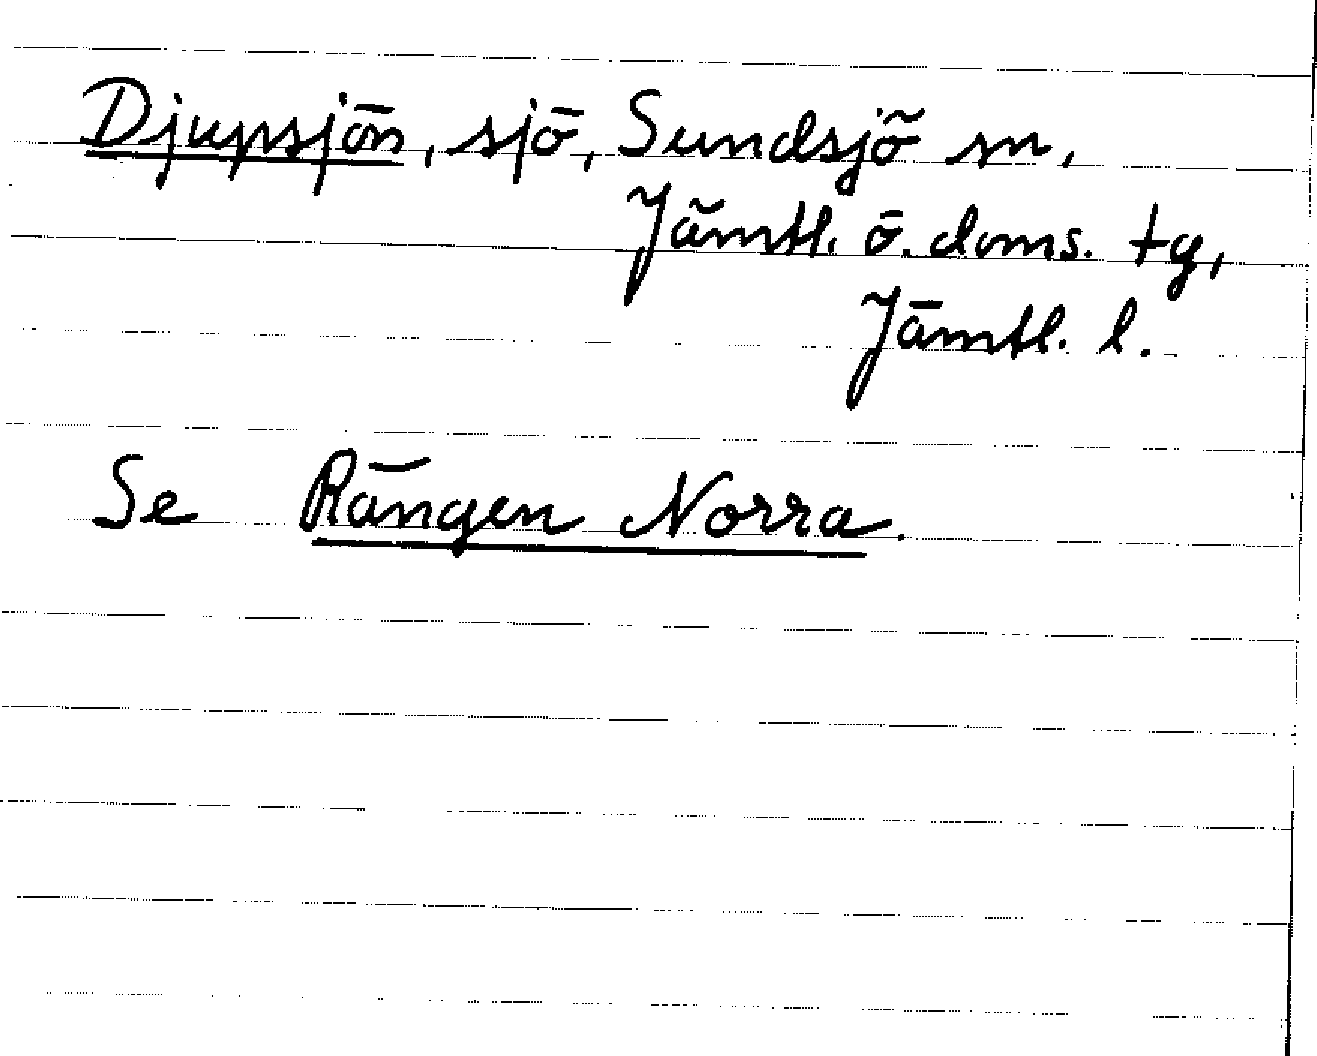 Djupsjön, sjö, Sundsjö sn,
Jämtl. ö. doms. tg,
Jämtl. l.
Se Rängen Norra.